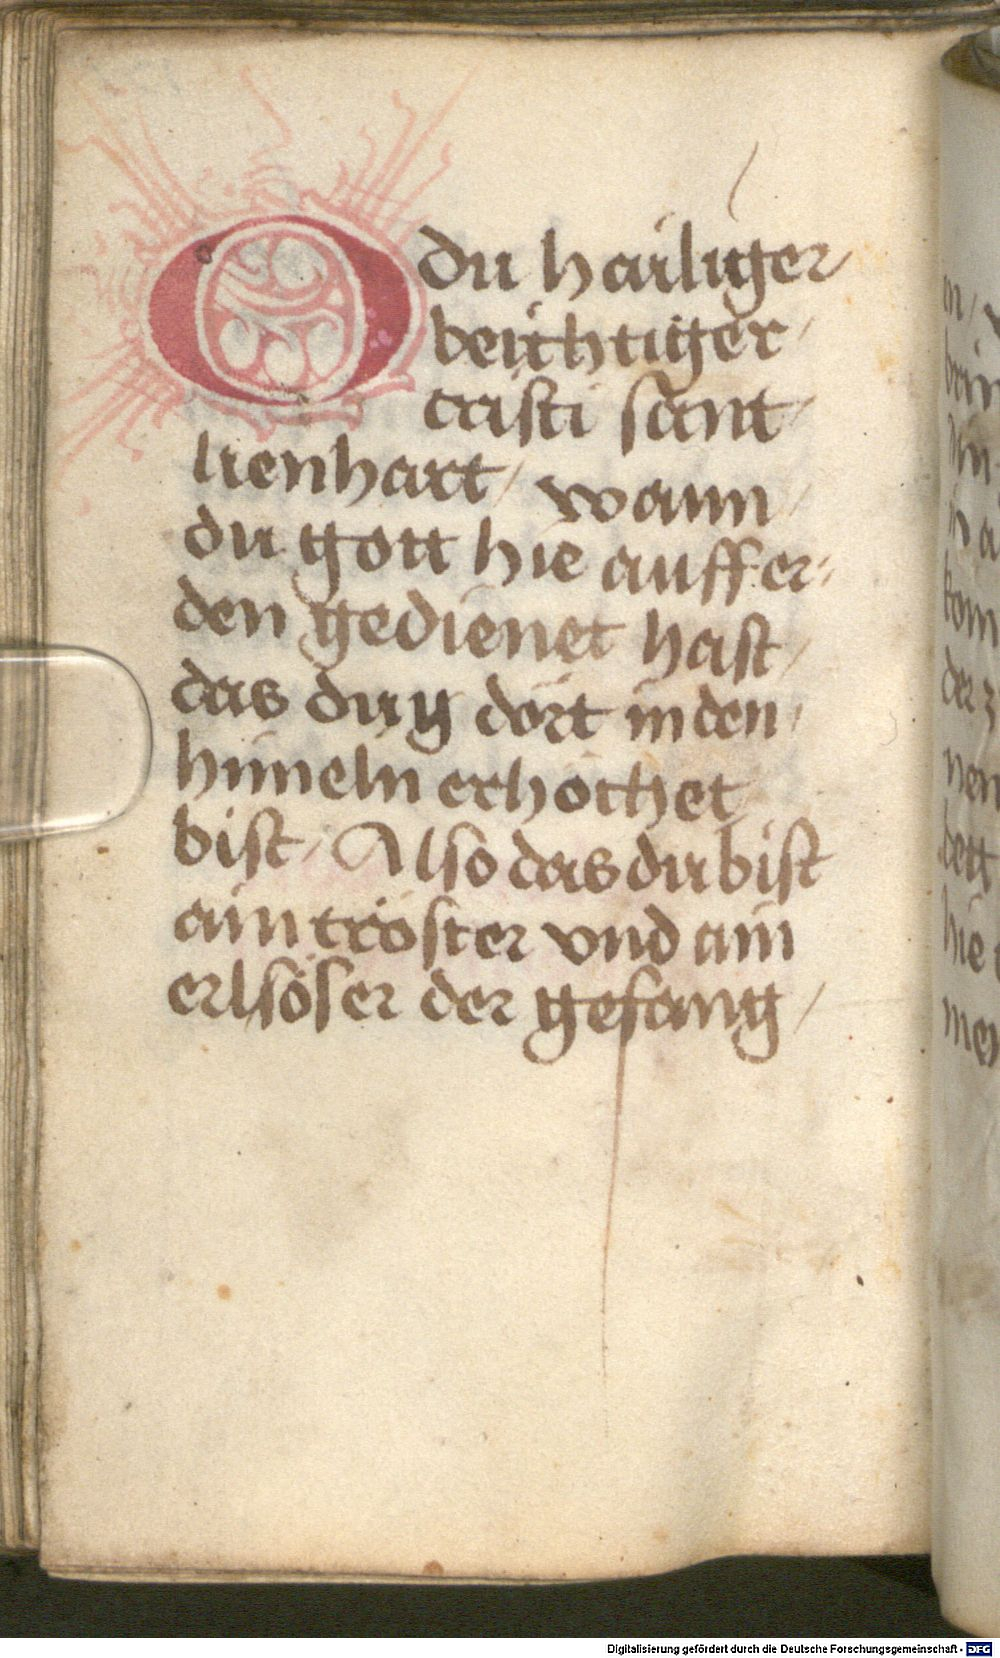 O du hailiger
beichtiger
cristi sant
lienhart / wann
du gott hie auff er-
den gedienet hast /
das du y dört in den
himeln erhöchet
bist / Also das du bist
ain tröster vnd ain
erlsöser der gefang /
Digitalisierung gefördert durch die Deutsche Forschungsgemeinschaft - DFG